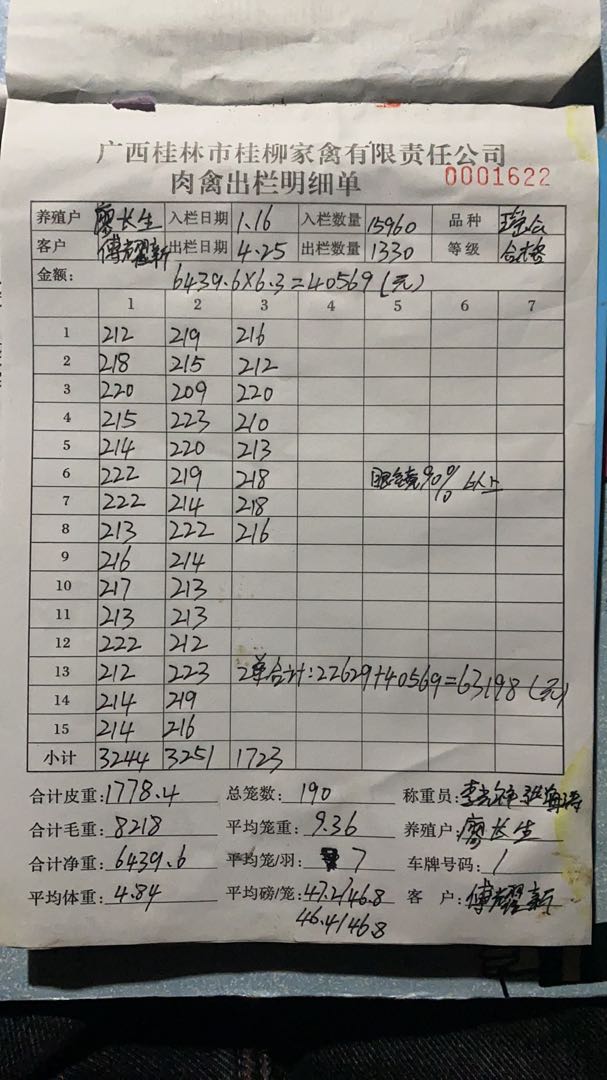 广西桂林市桂柳家禽有限责任公司
肉禽出栏明细单 0001622
养殖户 廖长生 入栏日期 1.16 入栏数量 15960 品种
客户 傅耀新 出栏日期 4.25 出栏数量 1330 等级 合格
金额: 6439.6×6.3=40569(元)
1 2 3 4 5 6 7
1 212 219 216
2 218 215 212
3 220 209 220
4 215 223 210
5 214 220 213
6 222 219 218 眼镜90% 以上
7 222 214 218
8 213 222 216
9 216 214
10 217 213
11 213 213
12 222 212
13 212 223 2单合计:22629+40569=63198(元)
14 214 219
15 214 216
小计 3244 3251 1723
合计皮重:1778.4 总笼数:190 称重员:
合计毛重:8218 平均笼重:9.36 养殖户:廖长生
合计净重:6439.6 平均笼/羽:7 车牌号码:/
平均体重:4.84 平均磅/笼:47.2/46.8 客户:傅耀新
46.4/46.8